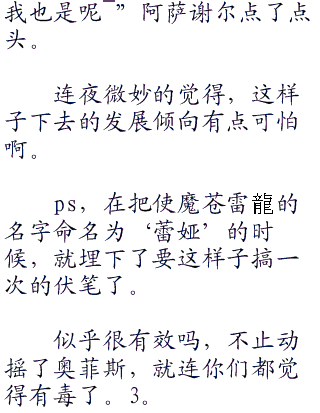 我也是呢~”阿萨谢尔点了点
头。
连夜微妙的觉得，这样
子下去的发展倾向有点可怕
啊。
ps，在把使魔苍雷龍的
名字命名为‘蕾娅’的时
候，就埋下了要这样子搞一
次的伏笔了。
似乎很有效吗，不止动
摇了奥菲斯，就连你们都觉
得有毒了。3。